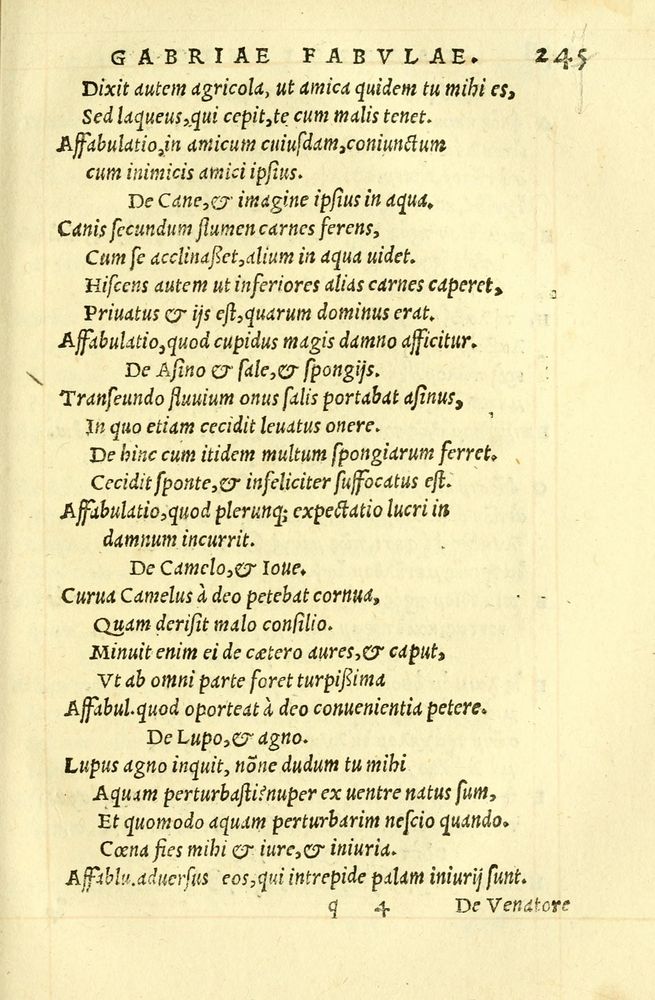 GABRIAE FABVLAE. 245
Dixit autem agricola, ut amica quidem tu mihi es,
Sed laqueus, qui cepit, te cum malis tenet.
Affabulatio, in amicum cuiusdam, coniunctum
cum inimicis amici ipsius.
De Cane, & imagine ipsius in aqua.
Canis secundum flumen carnes ferens,
Cum se acclinaßet, alium in aqua uidet.
Hiscens autem ut inferiores alias carnes caperet,
Priuatus & ijs est, quarum dominus erat.
Affabulatio, quod cupidus magis damno afficitur.
De Asino & sale, & spongijs.
Transeundo fluuium onus salis portabat asinus,
In quo etiam cecidit leuatus onere.
De hinc cum itidem multum spongiarum ferret.
Cecidit sponte, & infeliciter suffocatus est.
Affabulatio, quod plerunq; expectatio lucri in
damnum incurrit.
De Camelo, & Ioue.
Curua Camelus à deo petebat cornua,
Quam derisit malo consilio.
Minuit enim ei de cætero aures, & caput,
Vt ab omni parte foret turpißima
Affabul. quod oporteat à deo conuenientia petere.
De Lupo, & agno.
Lupus agno inquit, nõne dudum tu mihi
Aquam perturbasti? nuper ex uentre natus sum,
Et quomodo aquam perturbarim nescio quando.
Cœna fies mihi & iure, & iniuria.
Affablu. aduersus eos, qui intrepide palam iniurij sunt.
q 4 De Venatore